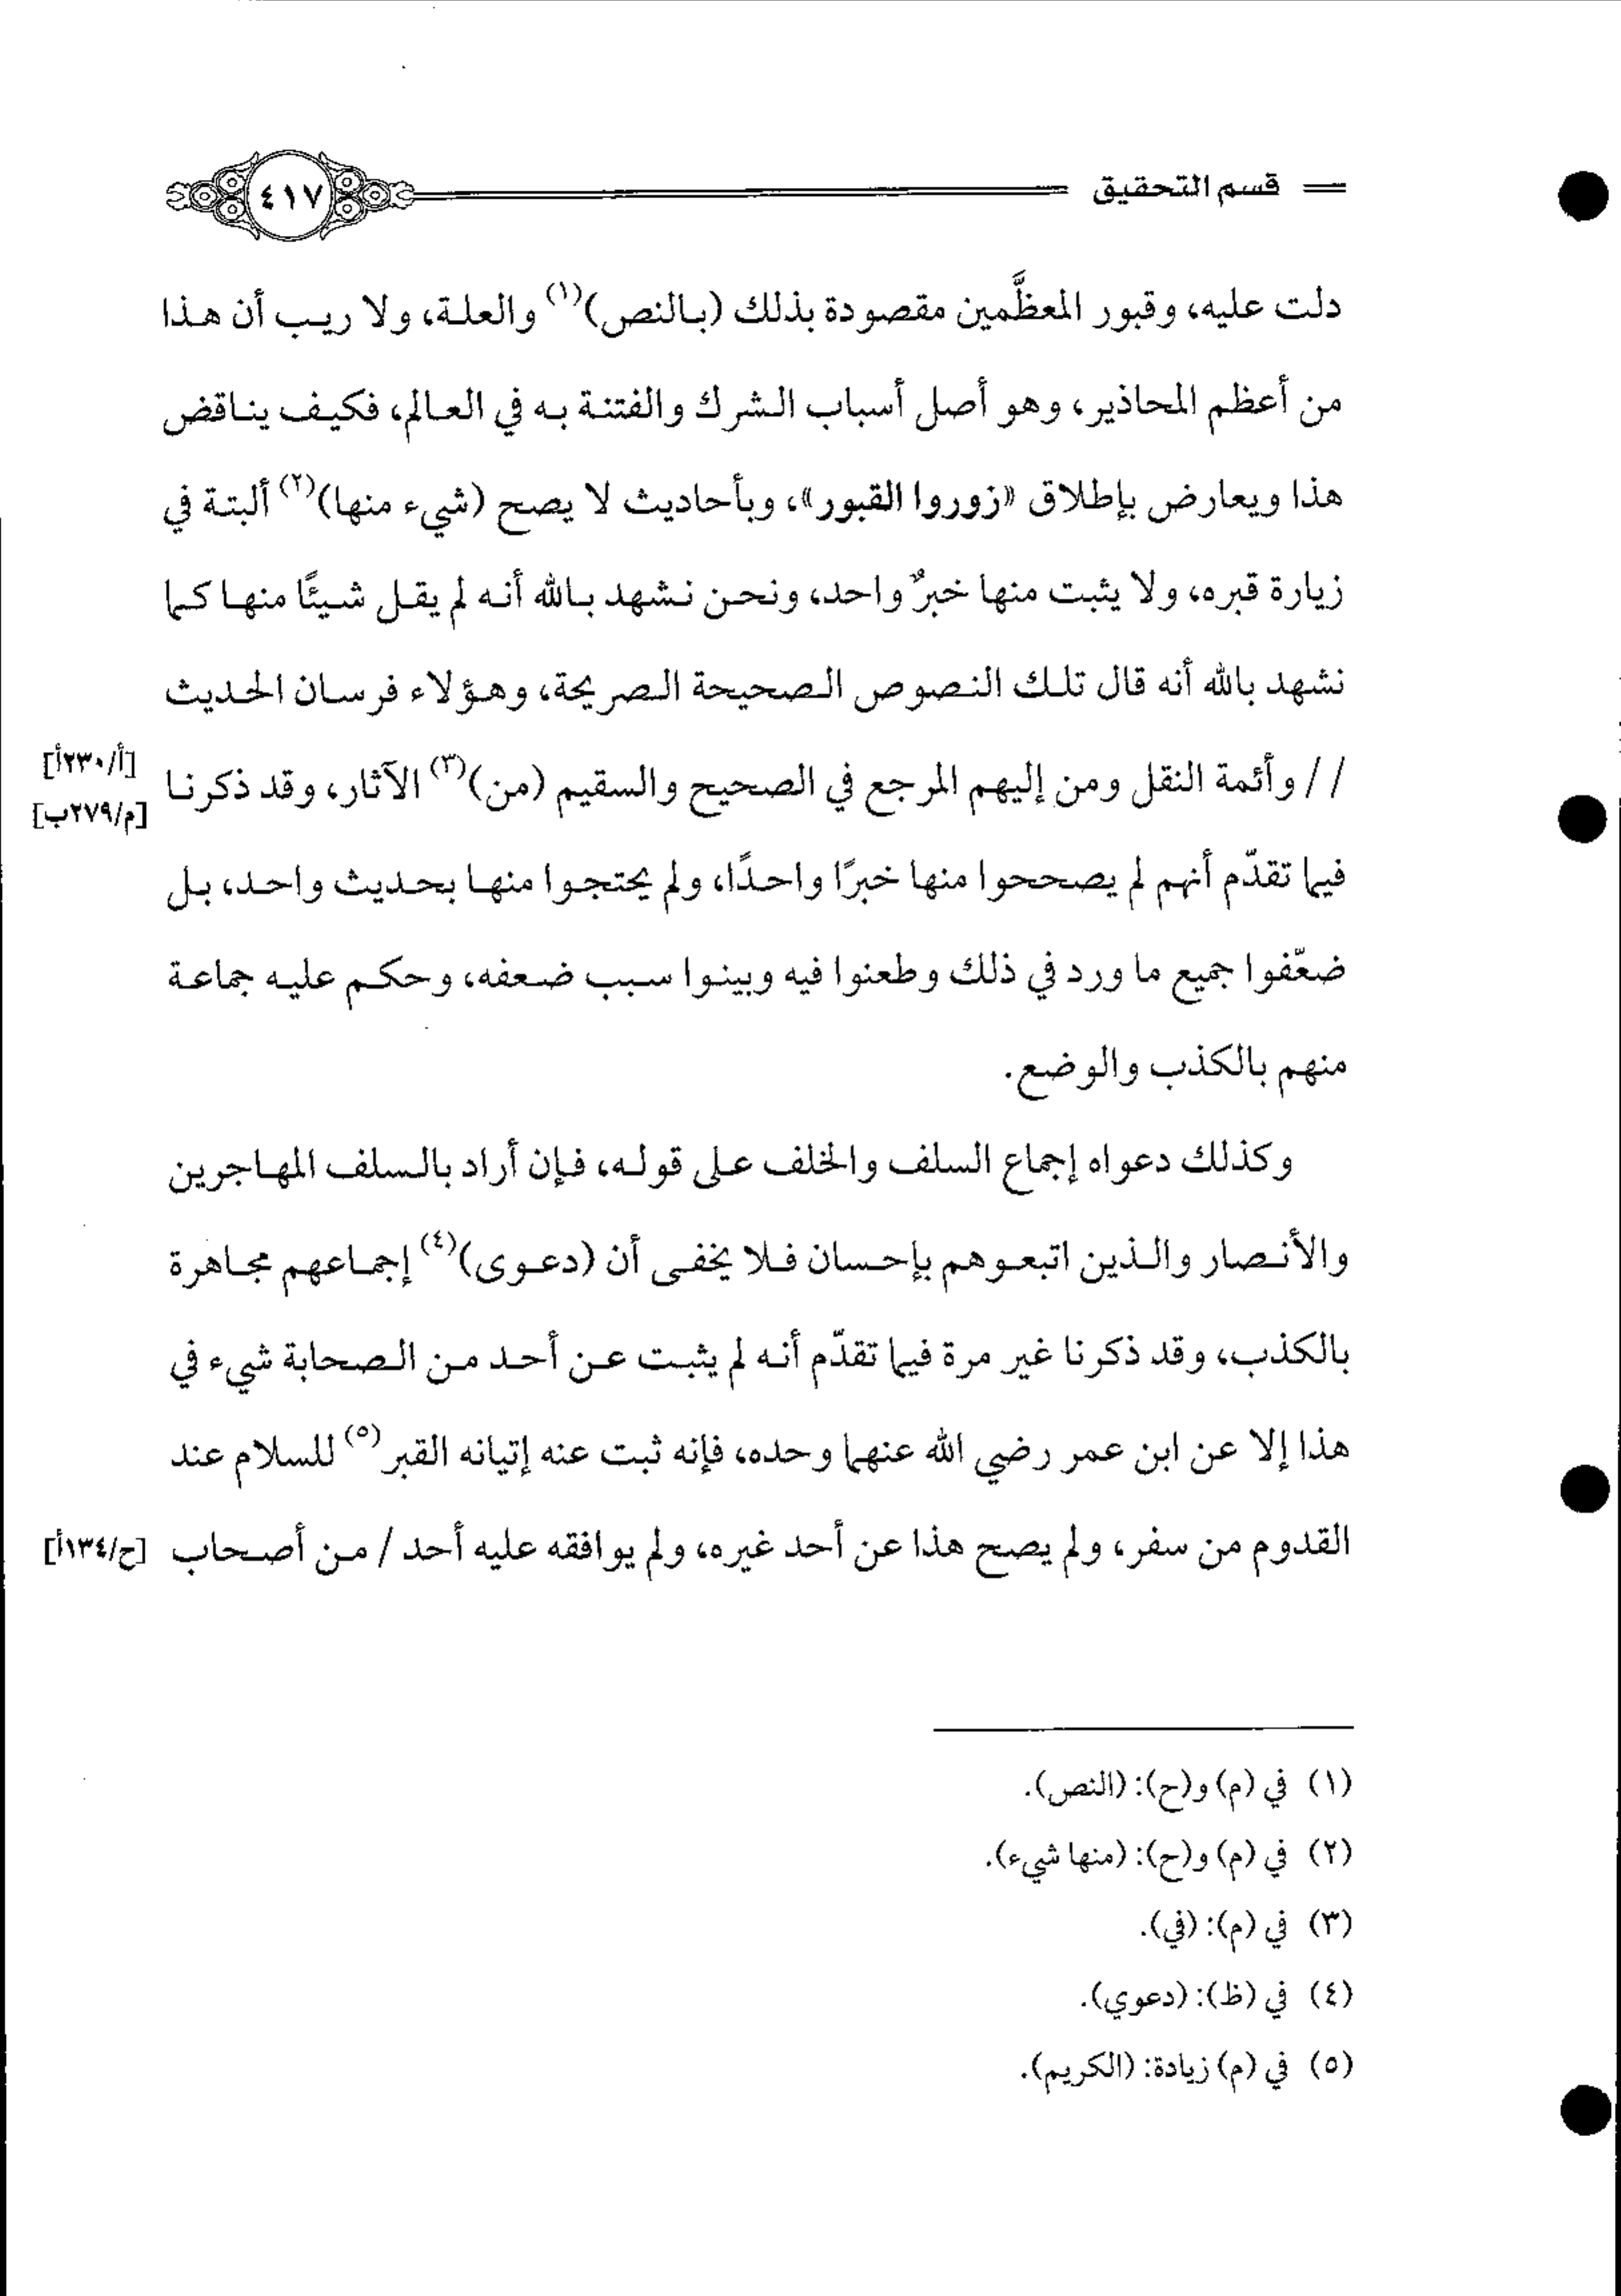 قسم التحقيق
٤١٧
دلت عليه، وقبور المعظَّمين مقصودة بذلك (بالنص)(١) والعلة، ولا ريب أن هذا
من أعظم المحاذير، وهو أصل أسباب الشرك والفتنة به في العالم، فكيف يناقض
هذا ويعارض بإطلاق «زوروا القبور»، وبأحاديث لا يصح (شيء منها)(٢) ألبتة في
زيارة قبره، ولا يثبت منها خبرٌ واحد، ونحن نشهد بالله أنه لم يقل شيئًا منها كما
نشهد بالله أنه قال تلك النصوص الصحيحة الصريحة، وهؤلاء فرسان الحديث
// وأئمة النقل ومن إليهم المرجع في الصحيح والسقيم (من)(٣) الآثار، وقد ذكرنا
[أ/٢٣٠أ]
[م/٢٧٩ب]
فيما تقدّم أنهم لم يصححوا منها خبرًا واحدًا، ولم يحتجوا منها بحديث واحد، بل
ضعّفوا جميع ما ورد في ذلك وطعنوا فيه وبينوا سبب ضعفه، وحكم عليه جماعة
منهم بالكذب والوضع.
وكذلك دعواه إجماع السلف والخلف على قوله، فإن أراد بالسلف المهاجرين
والأنصار والذين اتبعوهم بإحسان فلا يخفى أن (دعوى)(٤) إجماعهم مجاهرة
بالكذب، وقد ذكرنا غير مرة فيما تقدّم أنه لم يثبت عن أحد من الصحابة شيء في
هذا إلا عن ابن عمر رضي الله عنهما وحده، فإنه ثبت عنه إتيانه القبر(٥) للسلام عند
القدوم من سفر، ولم يصح هذا عن أحد غيره، ولم يوافقه عليه أحد / من أصحاب
[ح/١٣٤أ]
(١) في (م) و(ح): (النص).
(٢) في (م) و(ح): (منها شيء).
(٣) في (م): (في).
(٤) في (ظ): (دعوي).
(٥) في (م) زيادة: (الكريم).